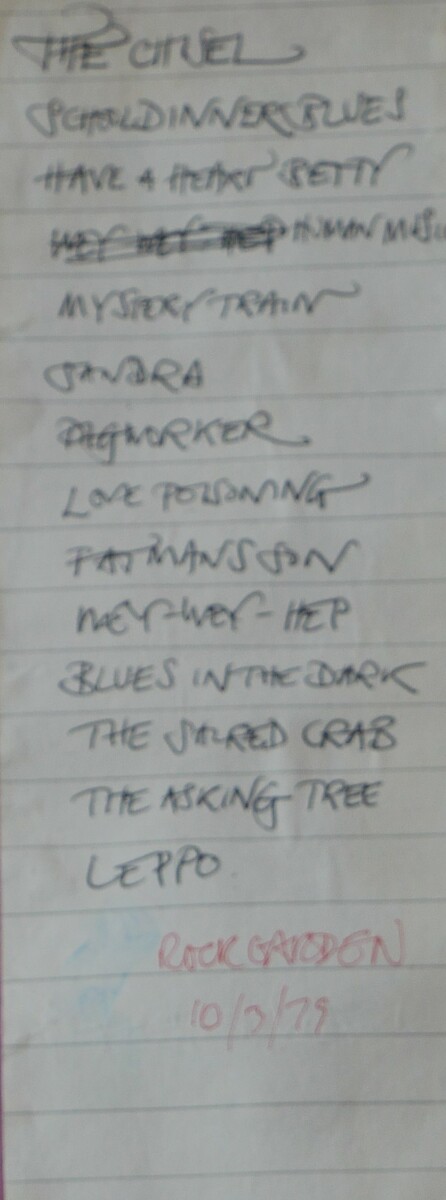 THE CHISEL
SCHOOL DINNER BLUES
HAVE A HEART BETTY
WEY WEY HEP HUMAN MUSIC
MYSTERY TRAIN
SANDRA
RAGWORKER
LOVE POISONING
FATMANS SON
WEY-WEY-HEP
BLUES IN THE DARK
THE SACRED CRAB
THE ASKING TREE
LEPPO
ROCK GARDEN
10/3/79